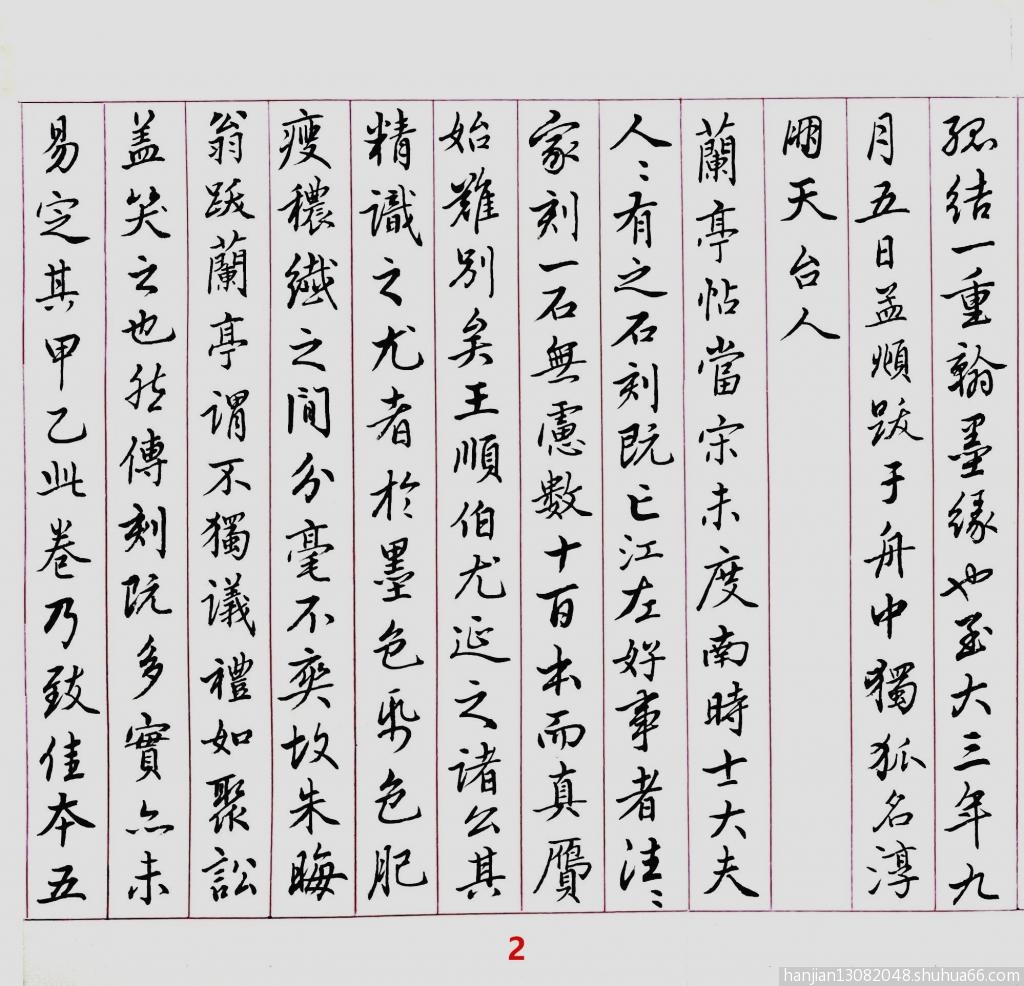 孤结一重翰墨缘也至大三年九
月五日孟頫跋于舟中獨狐名淳
朋天台人
蘭亭帖當宋未度南時士大夫
人〻有之石刻既亡江左好事者往〻
家刻一石無慮數十百本而真贗
始難別矣王順伯尤延之諸公其
精識之尤者於墨色紙色肥
瘦穠纖之間分毫不爽故朱晦
翁跋蘭亭謂不獨議禮如聚訟
盖笑之也然傳刻既多實亦未
易定其甲乙此卷乃致佳本五
2
hanjian13082048.shuhua66.com